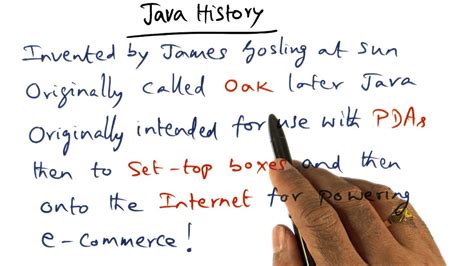 Java History
Invented by James Gosling at Sun
Originally called Oak later Java
Originally intended for use with PDAs
then to Set-top boxes and then
onto the Internet for powering
e-commerce!